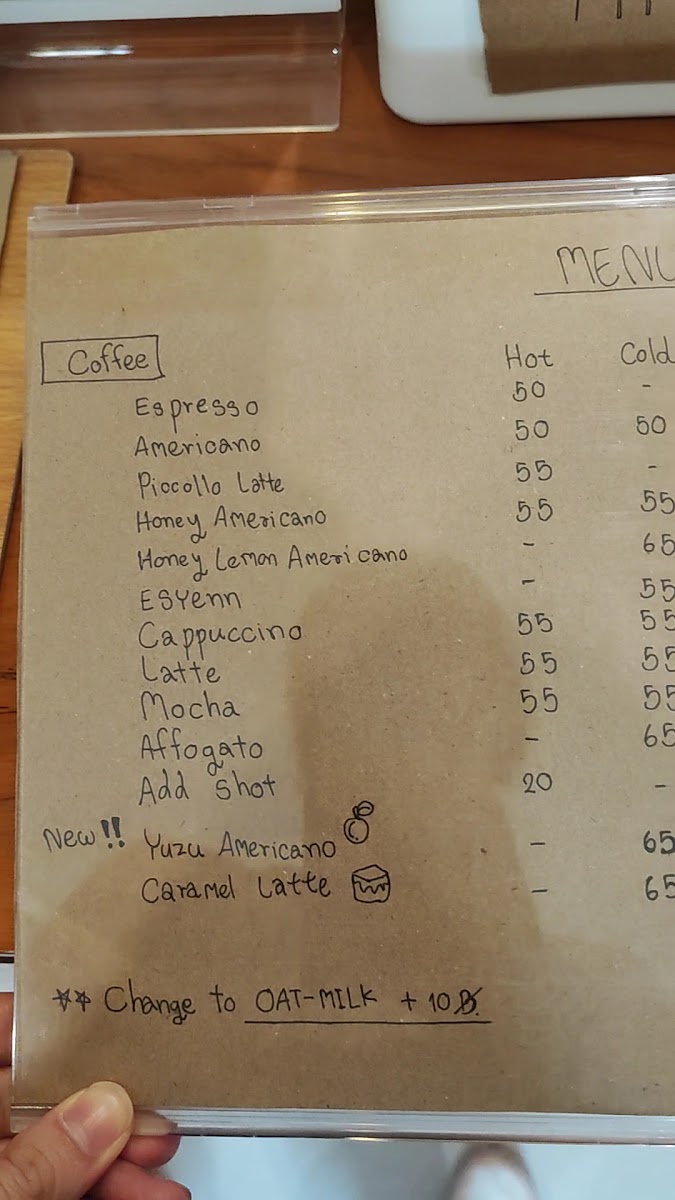 MENU
Coffee Hot Cold
Espresso 50 -
Americano 50 50
Piccollo Latte 55 -
Honey Americano 55 55
Honey Lemon Americano - 65
ESYenn - 55
Cappuccino 55 55
Latte 55 55
Mocha 55 55
Affogato - 65
Add shot 20 -
New!! Yuzu Americano - 65
Caramel Latte - 65
** Change to OAT-MILK + 10 ฿.